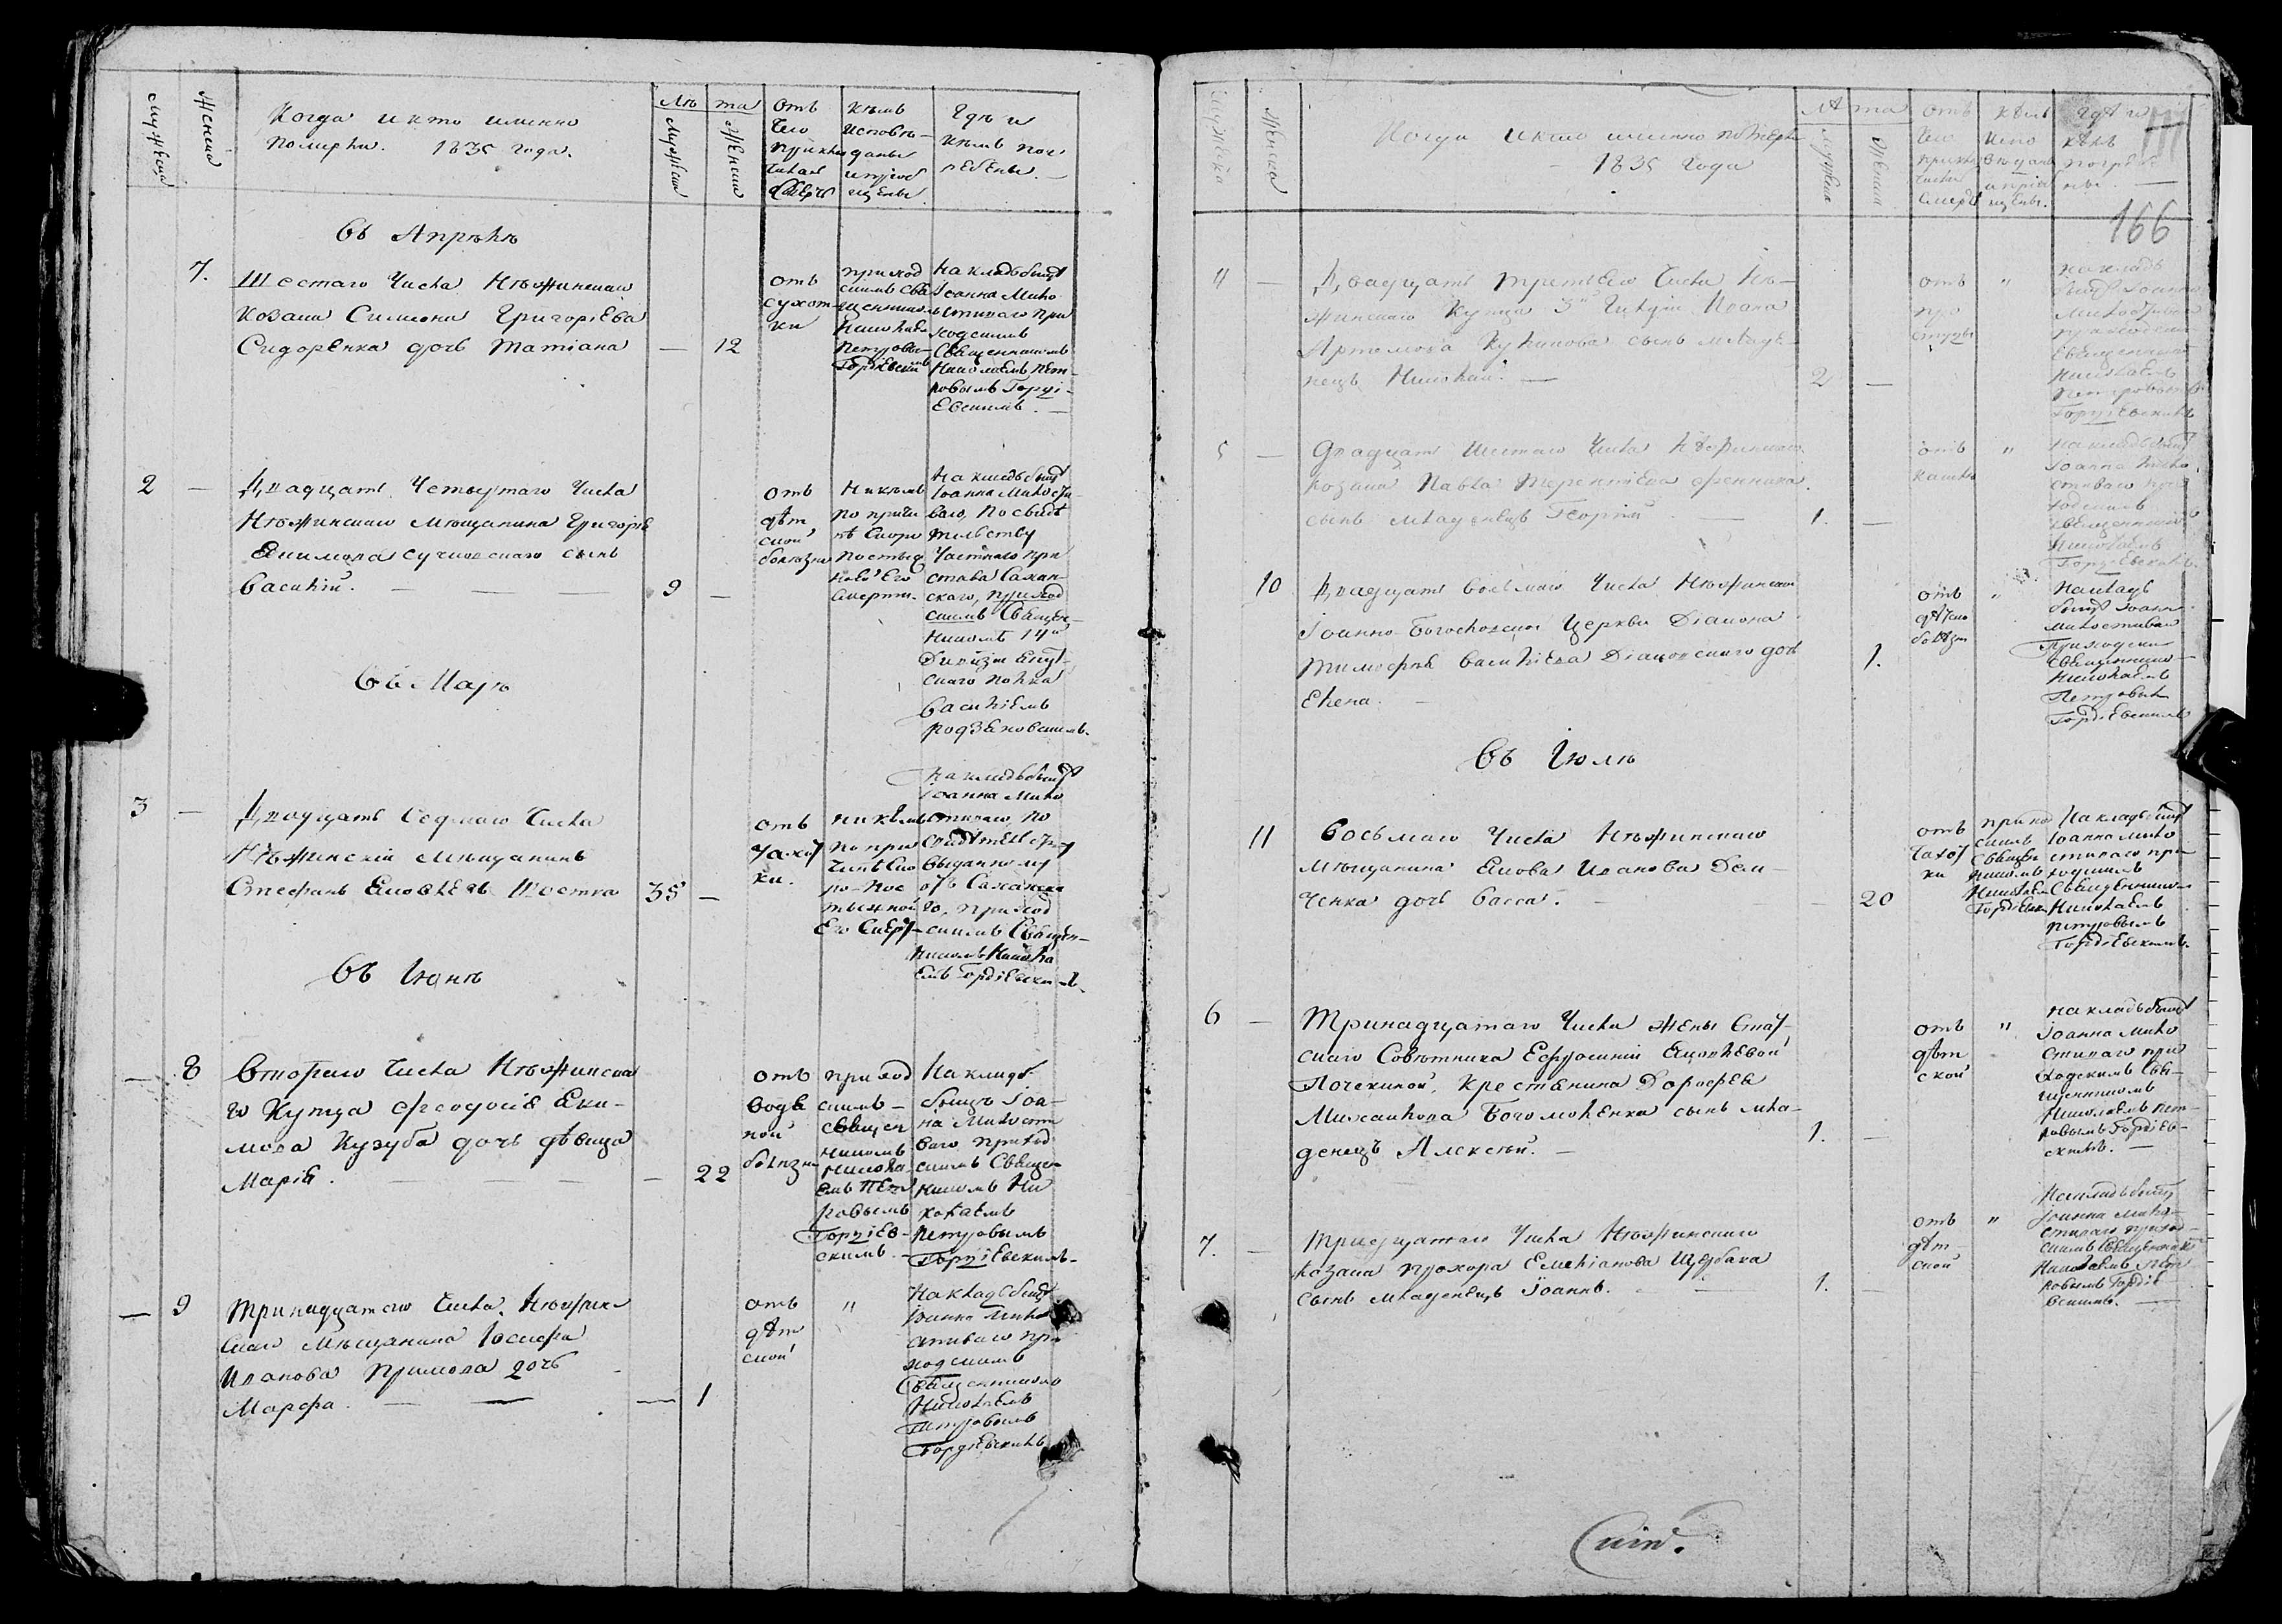 Мужеска
Женска
Когда и кто именно
померли. 1835 года.
Лѣ та
Мужеска
Женска
отъ чего приключилась смерть
кѣмъ исповѣданы и приобщены
Гдѣ и кѣмъ погребены. —
Въ Апрѣлѣ
7.
Шестаго числа Нѣжинскаго
козака Симеона Григоріева
Сидоренка дочь Татіана — 12
отъ
сухот-
ки
приход
скимъ свя
щенником
Николаем
Петровы-
Гордіевским
На кладбищѣ
Іоанна Мило
стиваго при
ходскимъ
Священникомъ
Николаемъ Пет-
ровымъ Горді-
евскимъ. —
2 —
Двадцать четвертаго числа
Нѣжинскаго мѣщанина Григорія
Якимова сына
Василій. — — — 9 —
отъ
дѣт
ской
болѣзни
Никѣмъ
по причи
нѣ скоро
постиг
его
смерти.
На кладбищѣ
Іоанна Милости-
ваго, по свидѣ
тельству
Частнаго при
става Сахан-
скаго, приход
скимъ Священ-
никомъ 14й
скаго полка
Василіемъ
Въ Маѣ
3 —
Двадцать седмаго числа
Нѣжинскій мѣщанинъ
Стефанъ Яковлевъ Шостка 35 —
отъ
чахот
ки.
никѣмъ
по при
чинѣ ско
ро-пос
тыжной
его смерт
На кладбищѣ
Іоанна Мило
стиваго, по
свидѣтельству
выданному
отъ Саханска
го, приход
скимъ Священ-
никомъ Никола
емъ Гордіевскимъ.
Въ Іюнѣ
— 8
Втораго числа Нѣжинска
го Купца Феодосія Яки-
мова Кузуба дочь дѣвица
Марія. — — — — 22
отъ
водя
ной
болѣзни
приход
скимъ —
священ
никомъ
Никола-
емъ Пет
ровымъ
Гордіев-
скимъ. —
На клад
бищѣ Іоан-
на Милости
ваго приход
скимъ Священ
никомъ Ни
колаемъ
Петровымъ
Гордіевскимъ.
— 9
Тринадцатаго числа Нѣжин
скаго мѣщанина Іосифа
Иванова Примова дочь
Марфа. — — — 1
отъ
дѣт
ской
"
На кладбищѣ
Іоанна Мило
стиваго при
ходскимъ
Священникомъ
Николаемъ
Петровымъ
Гордіевскимъ
Мужеска
Женска
Когда и кто именно помѣрли
1835 года
Лѣ та
Мужеска
Женска
отъ чего приключилась смерть
кѣмъ исповѣданы и пріобщены.
гдѣ и кѣмъ погребены. —
166
4 —
Двадцать третьего числа Нѣ-
жинскаго Купца 3й Гилдіи Ивана
Артемова Куликова сынъ младе-
нецъ Николай. — 2 —
отъ
про
студы
"
На клад
бищѣ Іоанна
Милостиваго
приходским
Священником
Николаемъ
Петровымъ
Гордіевскимъ
5 —
Двадцать шестаго числа Нѣжинскаго
козака Павла Терентіева
сынъ младенецъ Георгій — 1. —
отъ
кашля
"
На кладбищѣ
Іоанна Мило
стиваго при
ходскимъ
священникомъ
Николаемъ
Гордіевскимъ.
10
Двадцать восьмаго числа Нѣжинской
Іоанно-Богословской Церкви Діакона
Тимофѣя Василіева Діаковскаго дочь
Елена. — 1.
отъ
дѣтско
болѣзн
"
На клад
бищѣ Іоанн
Милостиваго
Приходским
Священником
Николаемъ
Петровым
Гордіевскимъ
Въ Іюлѣ
11
Восьмаго числа Нѣжинскаго
мѣщанина Якова Иванова Дем-
ченка дочь Васса. — — 20
отъ
чахот
ки
приход
скимъ
Священ
никомъ
Николаем
Гордіевск
На кладбищѣ
Іоанна Мило
стиваго при
ходскимъ
Священником
Николаемъ
Петровымъ
Гордіевскимъ.
6 —
Тринадцатаго числа жены Стат-
скаго Совѣтника Ефросиніи Яковлевой
Почекиной, крестьянина Дорофея
Михайлова Богомоленка сынъ мла-
денецъ Алексѣй. — 1. —
отъ
дѣт
ской
"
На кладбищѣ
Іоанна Мило
стиваго при
ходскимъ Свя-
щенникомъ
Николаемъ Пет-
ровымъ Гордіев-
скимъ. —
7. —
Тридцатаго числа Нѣжинскаго
козака Прохора Емеліанова Щербака
сынъ младенецъ Іоаннъ. — 1. —
отъ
дѣт
ской
"
На кладбищѣ
Іоанна Мило-
стиваго приход-
скимъ Священникомъ
Николаемъ Пет
ровымъ Гордіе
вскимъ. —